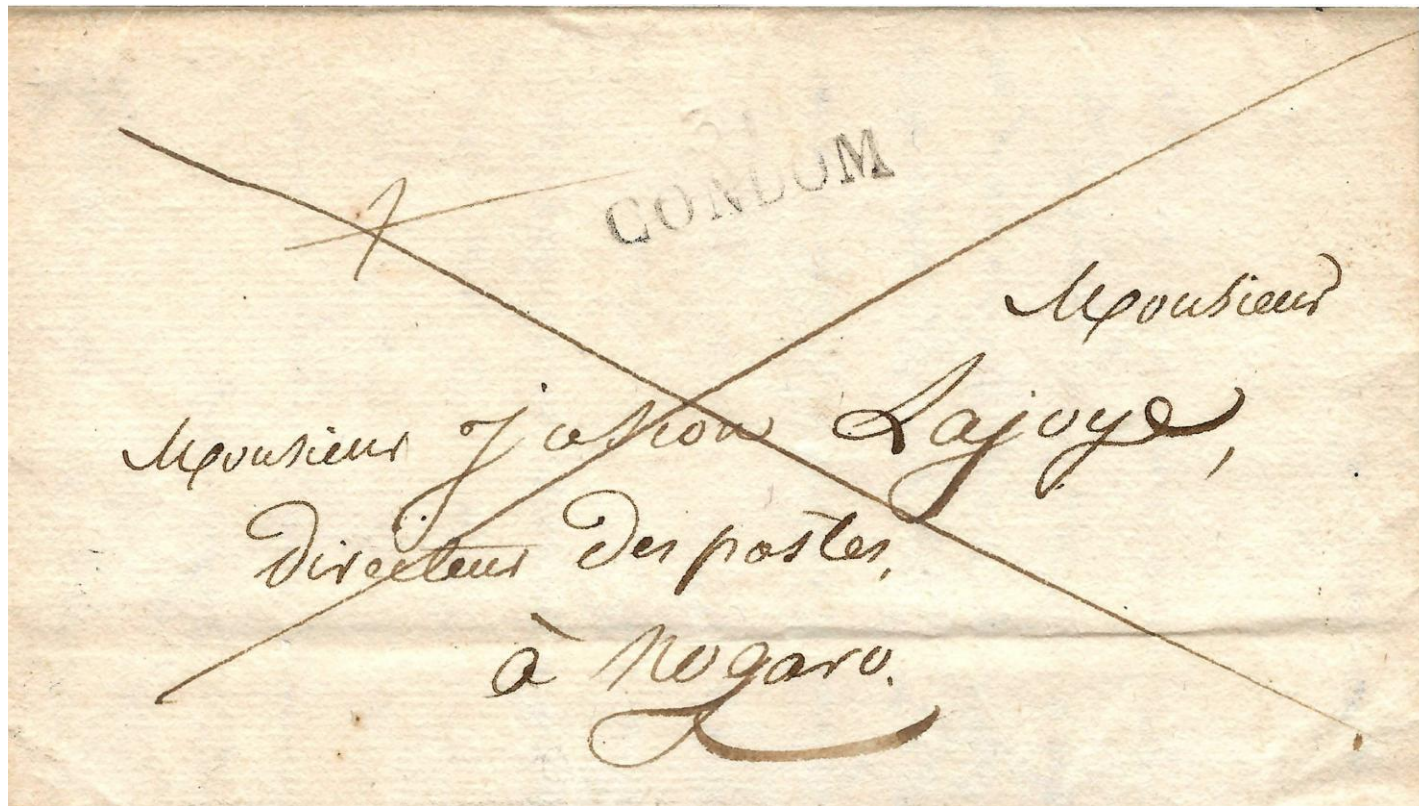 31
CONDOM
Monsieur
Monsieur Lajoye,
directeur des postes,
à Nogaro.